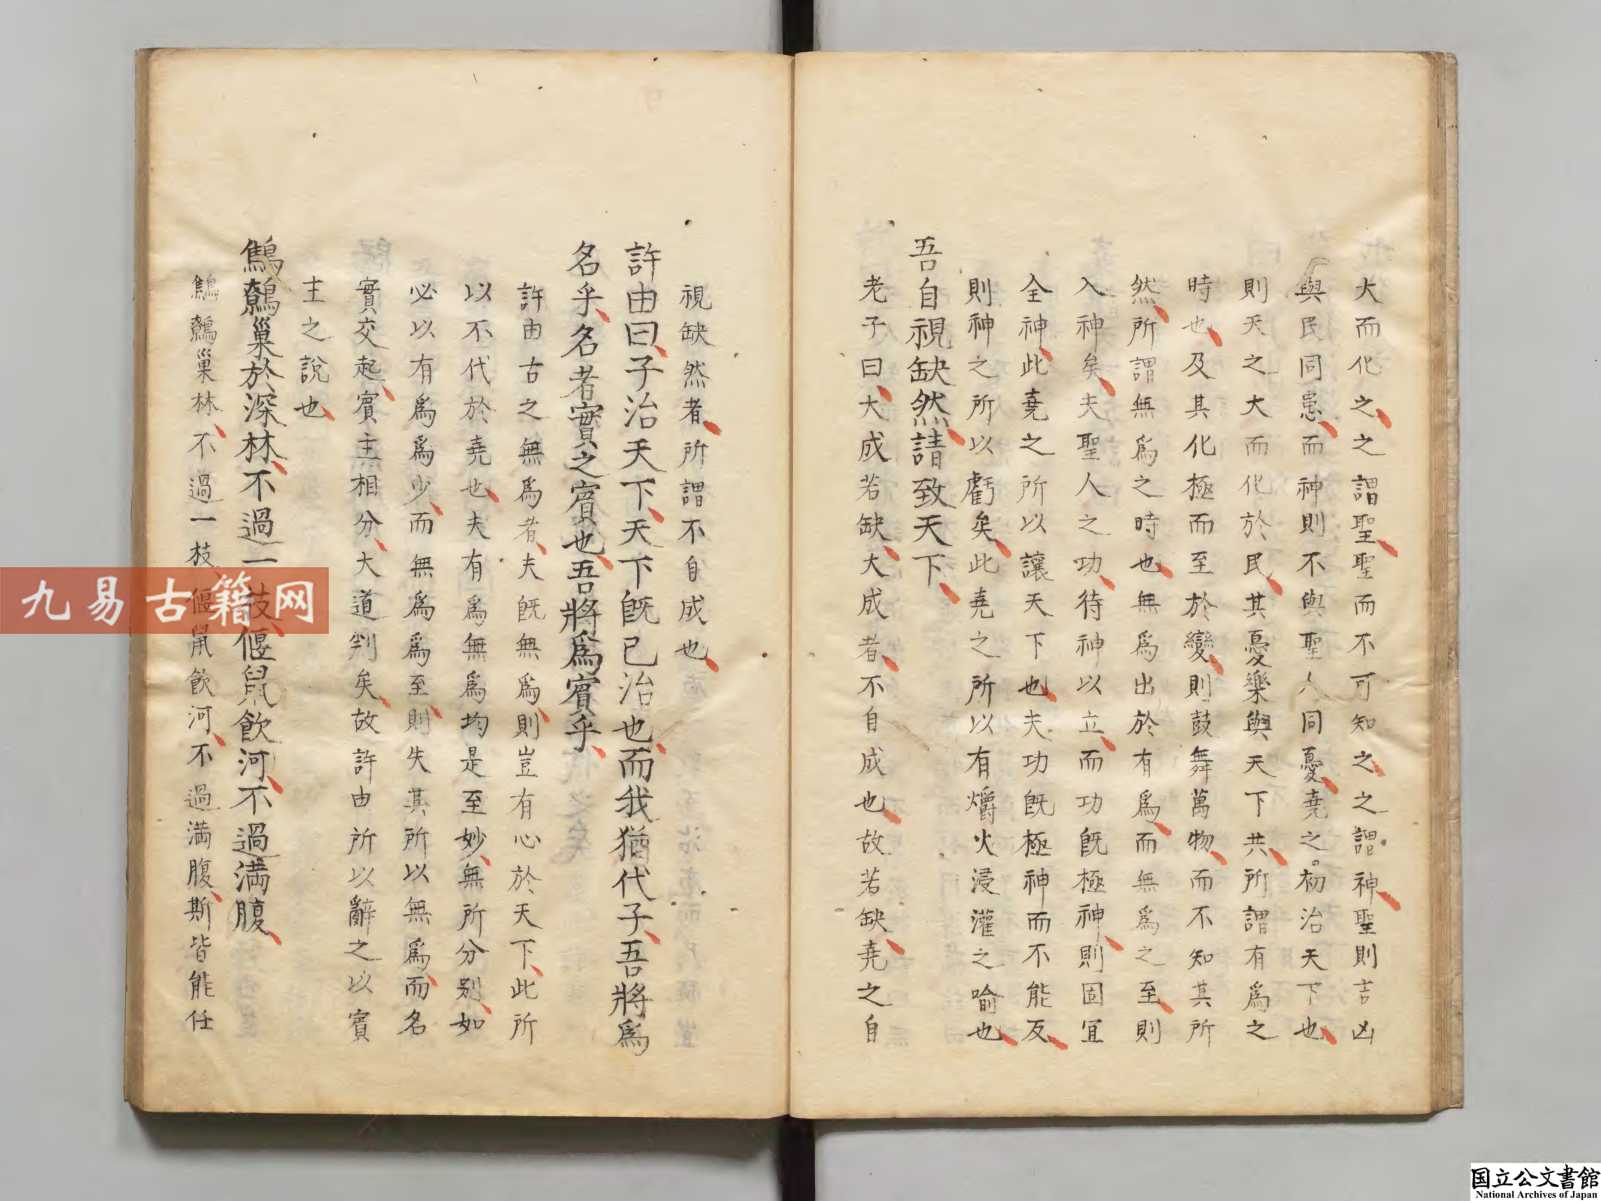 大而化之之謂聖聖而不可知之之謂神聖則吉凶
與民同患而神則不與聖人同憂堯之初治天下也
則天之大而化於民其憂樂與天下共所謂有爲之
時也及其化極而至於變則鼓舞萬物而不知其所
然所謂無爲之時也無爲出於有爲而無爲之至則
入神矣夫聖人之功待神以立而功旣極神則固宜
全神此堯之所以讓天下也夫功旣極神而不能反
則神之所以虧矣此堯之所以有爝火浸灌之喻也
吾自視缺然請致天下
老子曰大成若缺大成者不自成也故若缺堯之自
視缺然者所謂不自成也
許由曰子治天下天下旣已治也而我猶代子吾將爲
名乎名者實之賓也吾將爲賓乎
許由古之無爲者夫旣無爲則豈有心於天下此所
以不代於堯也夫有爲無爲均是至妙無所分別如
必以有爲爲少而無爲爲至則失其所以無爲而名
實交起賓主相分大道判矣故許由所以辭之以賓
主之說也
鷦鷯巢於深林不過一枝偃鼠飲河不過滿腹
鷦鷯巢林不過一枝偃鼠飲河不過滿腹斯皆能任
九易古籍网
国立公文書館
National Archives of Japan